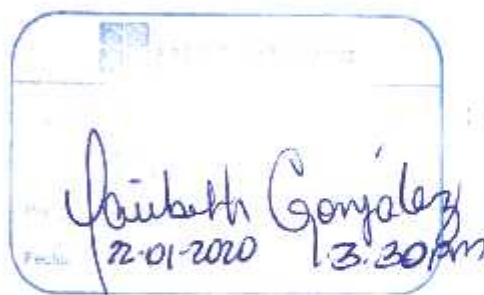 Yaribeth González
Fecha 22-01-2020 3:30pm